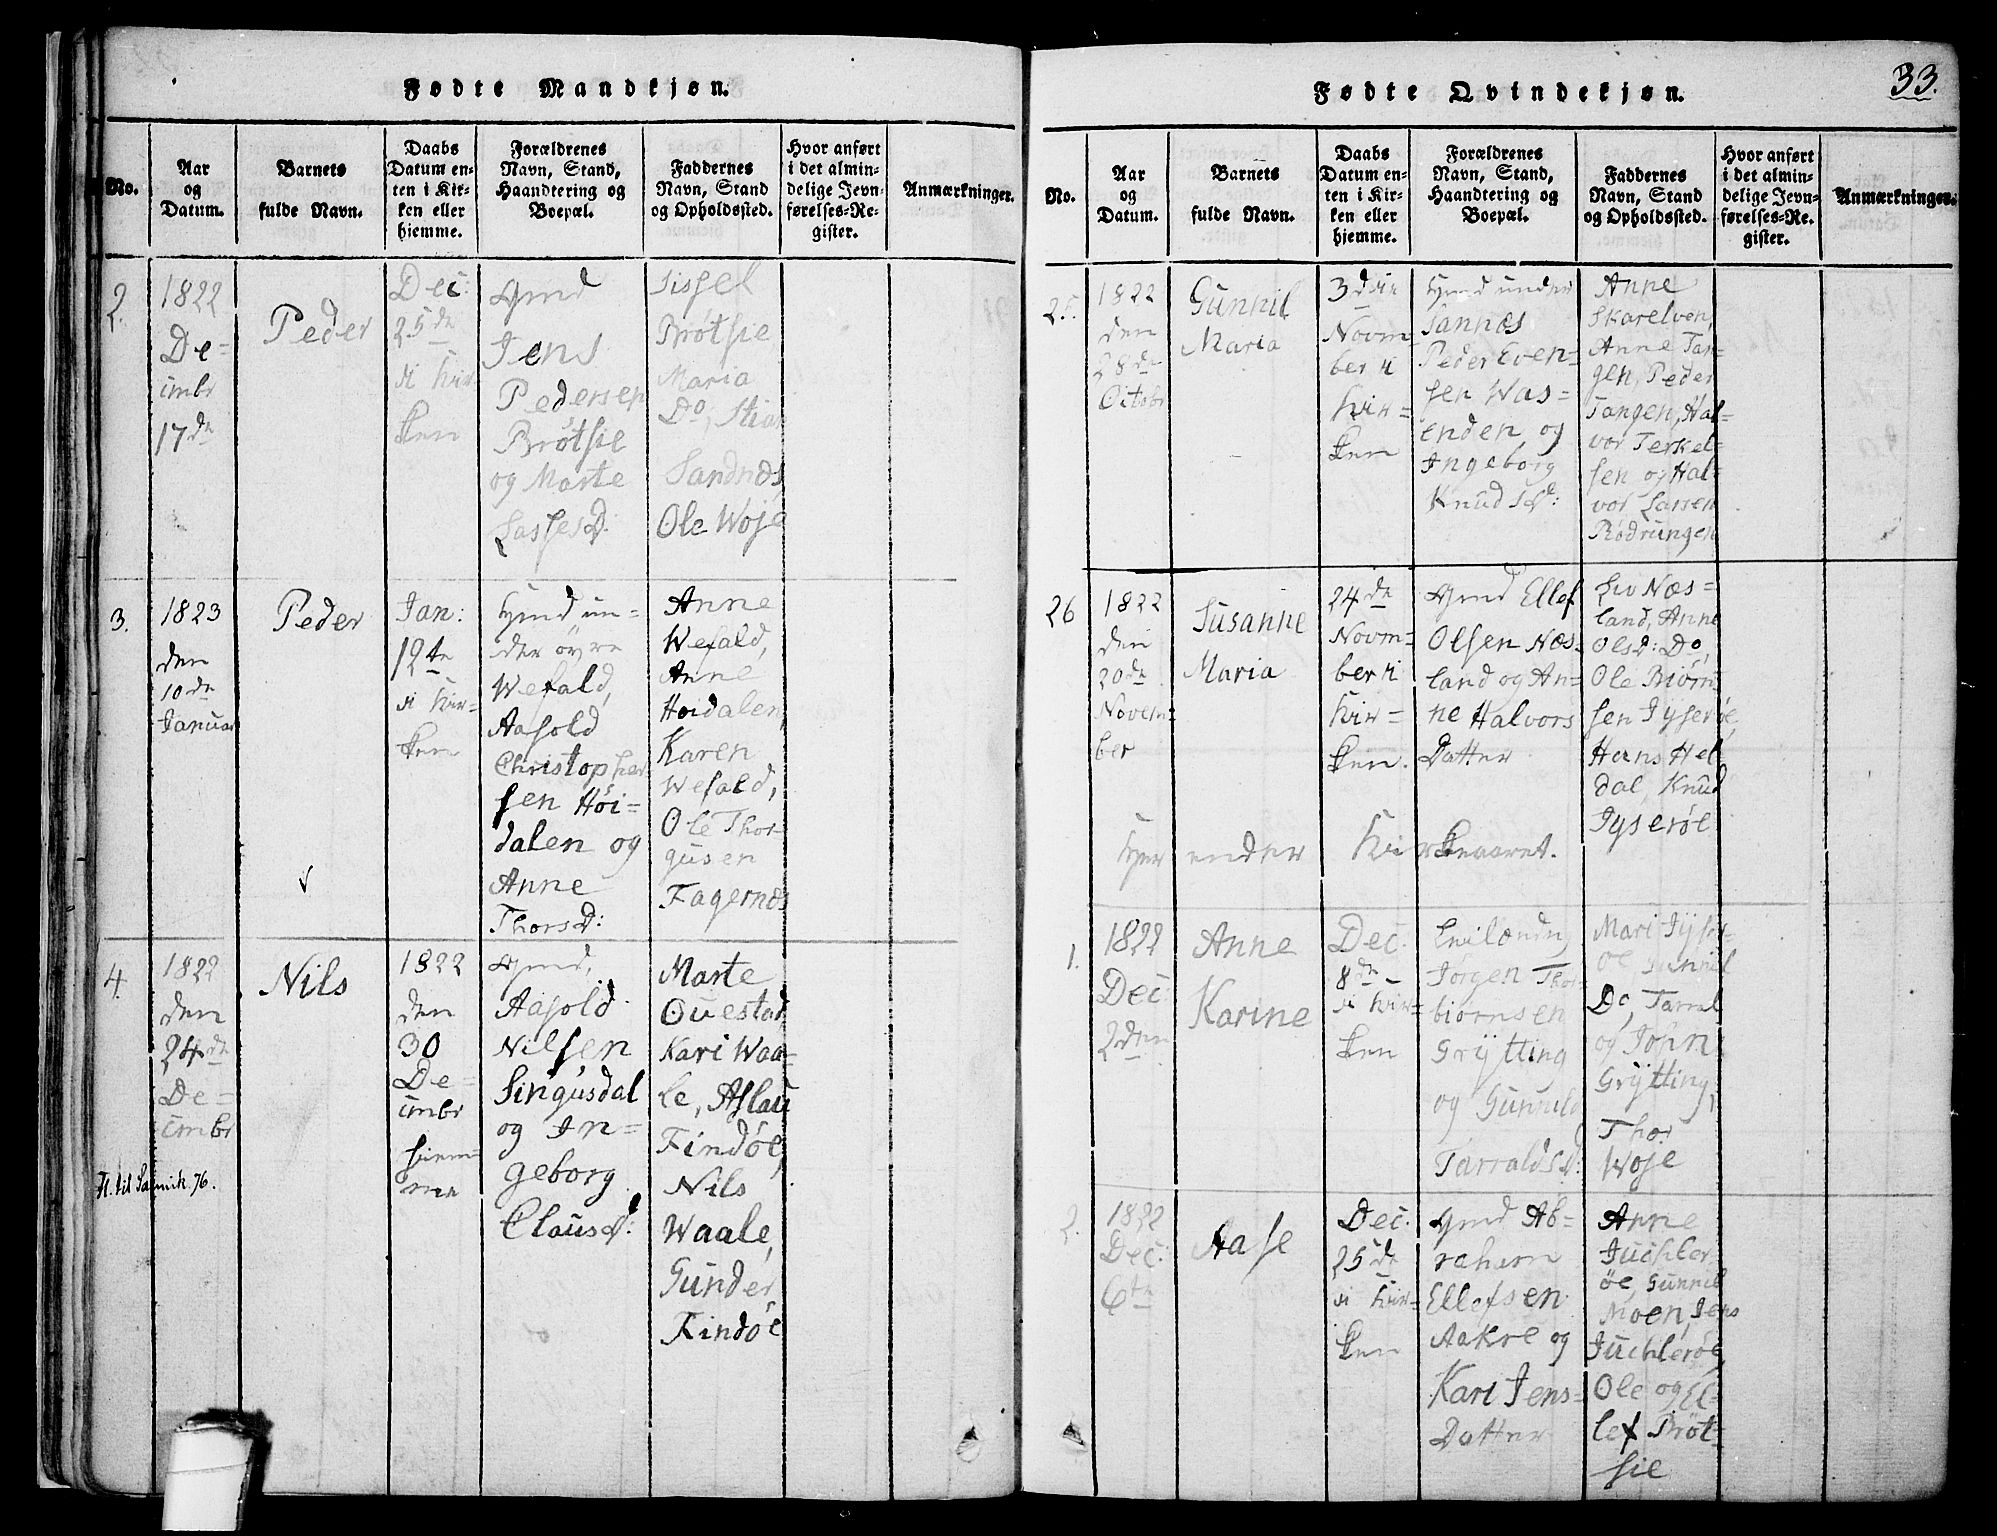 Fødte Mandkjøn.
No.
Aar
og
Datum.
Barnets
fulde Navn.
Daabs
Datum en-
ten i Kir-
ken eller
hjemme.
Forældrenes
Navn, Stand,
Haandtering og
Boepæl.
Faddernes
Navn, Stand
og Opholdssted.
Hvor anført
i det almin-
delige Jevn-
førelses-Re-
gister.
Anmærkninger.
2.
1822
De-
cmbr
17de
Peder
Dec:
25de
i Kir-
ken
Gmd
Jens
Pedersen
Brøtsie
og Marte
Lassesd:
Sissel
Brøtsie
Maria
Do, Stian
Sandnæs,
Ole Woje
3.
1823
den
10de
Januar
Peder
Jan:
12te
i Kir-
ken
Hmd un-
der øvre
Wefald,
Aasold
Christopher
sen Höi-
dalen og
Anne
Thorsd:
Anne
Wefald,
Anne
Hoidalen,
Karen
Wefald,
Ole Thor-
gusen
Fagernæs
4.
1822
den
24de
De-
cmbr
Fl. til Sannik. 76.
Nils
1822
den
30
De-
cmbr
hiem-
me
Gmd,
Aasold
Nilsen
Singusdal
og In-
geborg
Clausd:
Marte
Ouestad
Kari Waa-
le, Aslau
Findöe,
Nils
Waale,
Gunder
Findöe
33.
Fødte Qvindekjøn.
No.
Aar
og
Datum.
Barnets
fulde Navn.
Daabs
Datum en-
ten i Kir-
ken eller
hjemme.
Forældrenes
Navn, Stand,
Haandtering og
Boepæl.
Faddernes
Navn, Stand
og Opholdssted.
Hvor anført
i det almin-
delige Jevn-
førelses-Re-
gister.
Anmærkninger.
25.
1822
den
28de
Octobr
Gunnil
Maria
3die
Novm
ber i
Kir-
ken
Hmd under
Sannæs
Peder Even-
sen Was-
enden og
Ingeborg
Knudsd:
Anne
Skarelven,
Anne Tan-
gen, Peder
Tangen, Hal-
vor Terkel-
sen og Hal-
vor Larsen
Rødrungen
26
1822
den
20de
Novem-
ber
Susanne
Maria
24de
Novm-
ber i
Kir-
ken.
Gmd Ellef
Olsen Næs-
land og An-
ne Halvors
Datter
Liv Næs-
land, Anne
Olsd: Do,
Ole Biørn
sen Jyserøe,
Hans Hel
dal, Knud
Jyserøe
Her ender Kirkeaaret.
1.
1822
Dec:
2den
Anne
Karine
Dec:
8de
i Kir-
ken
Jørgen Thor-
biørnsen
Grÿtting
og Gunnild
Tarraldsd:
Mari Jyser-
øe, Gunnil
Do, Tarral
og John
Grÿtting,
Thor
Woje
2.
1822
Dec:
6te
Aase
Dec:
25de
i Kir-
ken
Gmd Ab-
raham
Ellefsen
Aakre og
Kari Jens-
Datter
Anne
Juchler
öe, Gunnil
Moen, Jens
Juchleröe,
Ole og El-
lef Brøt-
sie